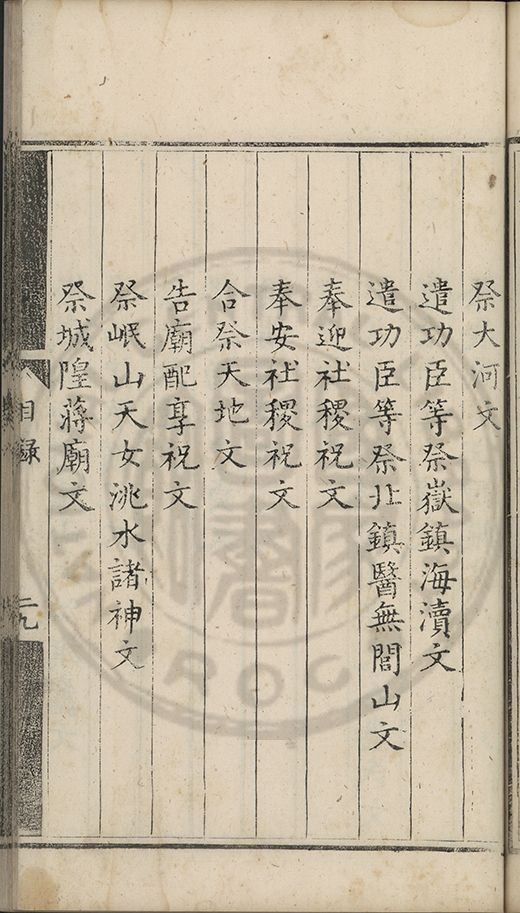 祭大河文
遣功臣等祭嶽鎮海瀆文
遣功臣等祭北鎮醫無閭山文
奉迎社稷祝文
奉安社稷祝文
合祭天地文
告廟配享祝文
祭岷山天女洮水諸神文
祭城隍蔣廟文
目録